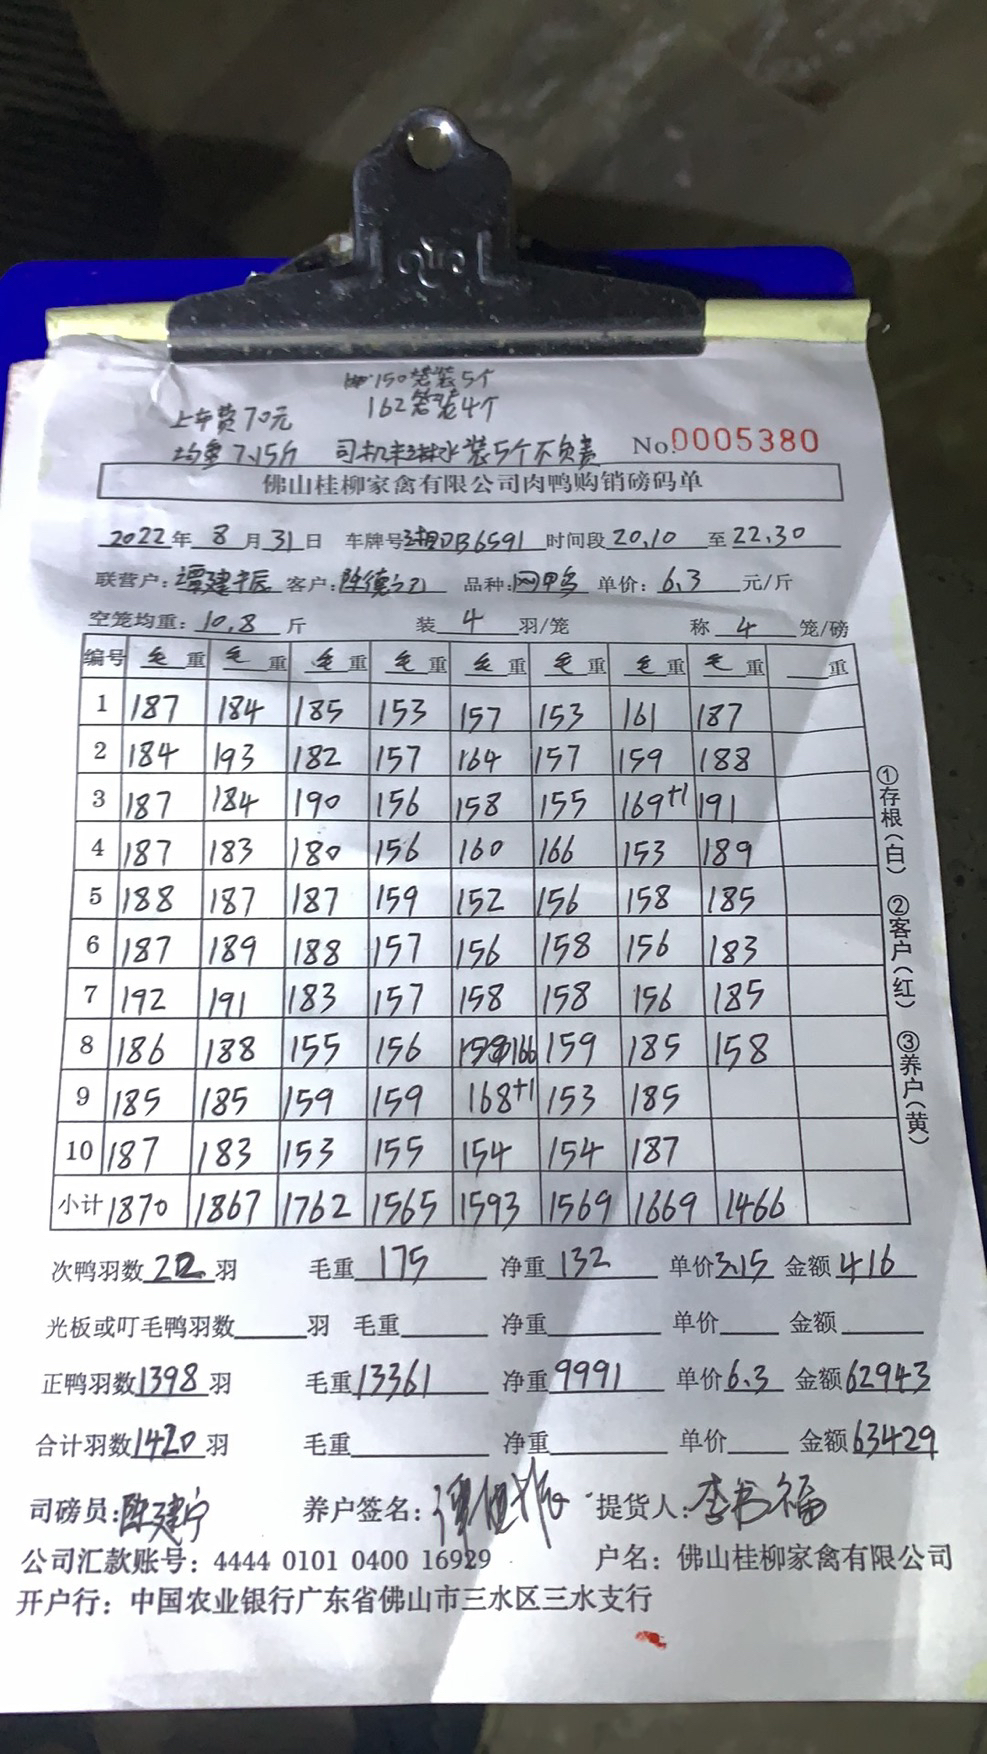 150笼装5个
162笼装4个
上车费70元
均重7.15斤 司机淋水装5个不负责 No.0005380
佛山桂柳家禽有限公司肉鸭购销磅码单
2022年 8月31日 车牌号湘DB6591 时间段20.10 至22.30
联营户:谭建辰 客户:陈德 品种:网鸭 单价:6.3元/斤
空笼均重:10.8斤 装4羽/笼 称4笼/磅
编号 毛重 毛重 毛重 毛重 毛重 毛重 毛重 毛重 重
1 187 184 185 153 157 153 161 187
2 184 193 182 157 164 157 159 188
3 187 184 190 156 158 155 169+1 191
4 187 183 180 156 160 166 153 189
5 188 187 187 159 152 156 158 185
6 187 189 188 157 156 158 156 183
7 192 191 183 157 158 158 156 185
8 186 188 155 156 166 159 185 158
9 185 185 159 159 168+1 153 185
10 187 183 153 155 154 154 187
小计 1870 1867 1762 1565 1593 1569 1669 1466
次鸭羽数22羽 毛重175 净重132 单价3.15 金额416
光板或叮毛鸭羽数 羽 毛重 净重 单价 金额
正鸭羽数1398羽 毛重13361 净重9991 单价6.3 金额62943
合计羽数1420羽 毛重 净重 单价 金额63429
司磅员:陈建宁 养户签名: 提货人:李书福
公司汇款账号:4444 0101 0400 16929 户名:佛山桂柳家禽有限公司
开户行:中国农业银行广东省佛山市三水区三水支行
①存根(白) ②客户(红) ③养户(黄)